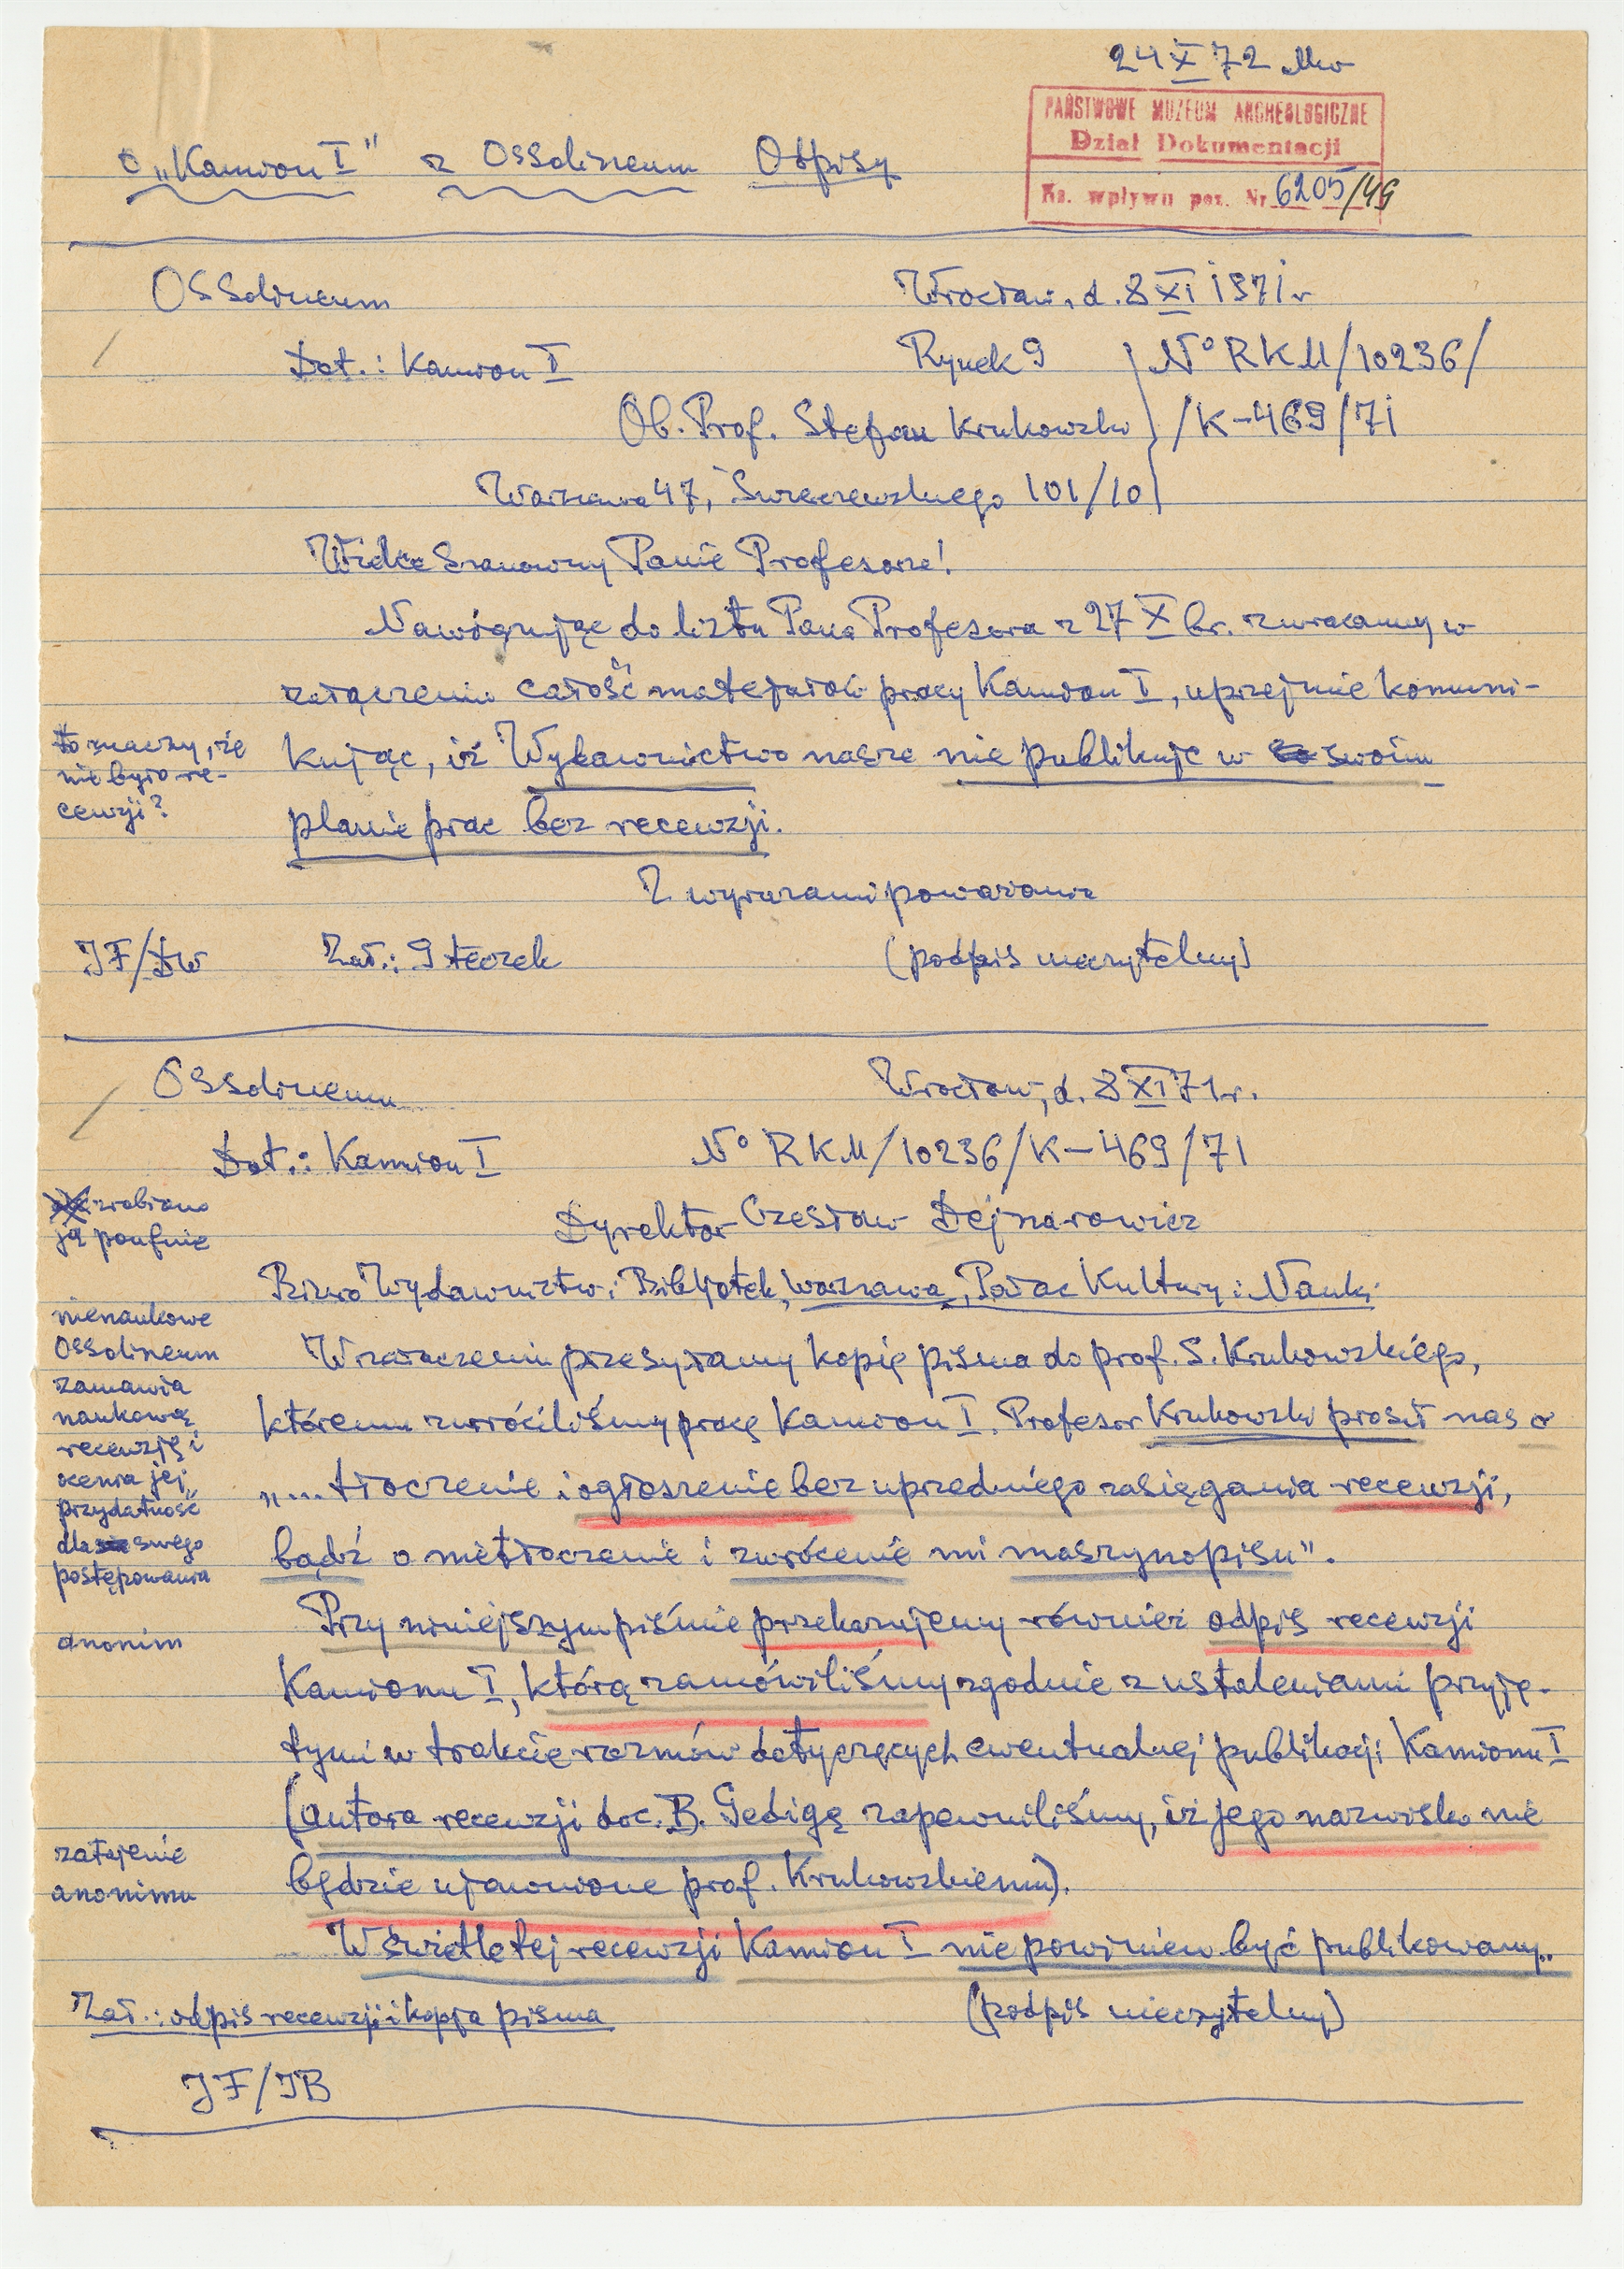 24 X 72
PAŃSTWOWE MUZEUM ARCHEOLOGICZNE
Dział Dokumentacji
Ks. wpływu poz. Nr 6205/49
o „Kamion I" z Ossolineum Odpisy
Ossolineum Wrocław, d. 8 XI 1971 r
Dot.: Kamion I Rynek 9 N° RKM/10236/
Ob. Prof. Stefan Krukowski /K-469/71
Warszawa 47, Świerczewskiego 101/10
Wielce Szanowny Panie Profesorze!
Nawiązując do listu Pana Profesora z 27 X br. zwracamy w
załączeniu całość materiałów pracy Kamion I, uprzejmie komuni-
to znaczy, że
nie było re-
cenzji?
kując, iż Wydawnictwo nasze nie publikuje w swoim
planie prac bez recenzji.
Z wyrazami poważania
JF/DW Zał.: 9 teczek (podpis nieczytelny)
Ossolineum Wrocław, d. 8 XI 71 r.
Dot.: Kamion I N° RKM/10236/K-469/71
zrobiono
ją poufnie
Dyrektor Czesław Dejnarowicz
Biuro Wydawnictw i Bibljotek, Warszawa, Pałac Kultury i Nauki
nienaukowe
Ossolineum
zamawia
naukową
recenzję i
ocenia jej
przydatność
dla swego
postępowania
W załączeniu przesyłamy kopię pisma do prof. S. Krukowskiego,
któremu zwróciliśmy pracę Kamion I. Profesor Krukowski prosił nas o
„... tłoczenie i ogłoszenie bez uprzedniego zasięgania recenzji,
bądź o nietłoczenie i zwrócenie mi maszynopisu".
anonim
Przy niniejszym piśmie przekazujemy również odpis recenzji
Kamionu I, którą zamówiliśmy zgodnie z ustaleniami przyję-
tymi w trakcie rozmów dotyczących ewentualnej publikacji Kamionu I
(autora recenzji doc. B. Gedigę zapewniliśmy, iż jego nazwisko nie
zatajenie
anonimu
będzie ujawnione prof. Krukowskiemu).
W świetle tej recenzji Kamion I nie powinien być publikowany..
Zał.: odpis recenzji i kopja pisma (podpis nieczytelny)
JF/JB